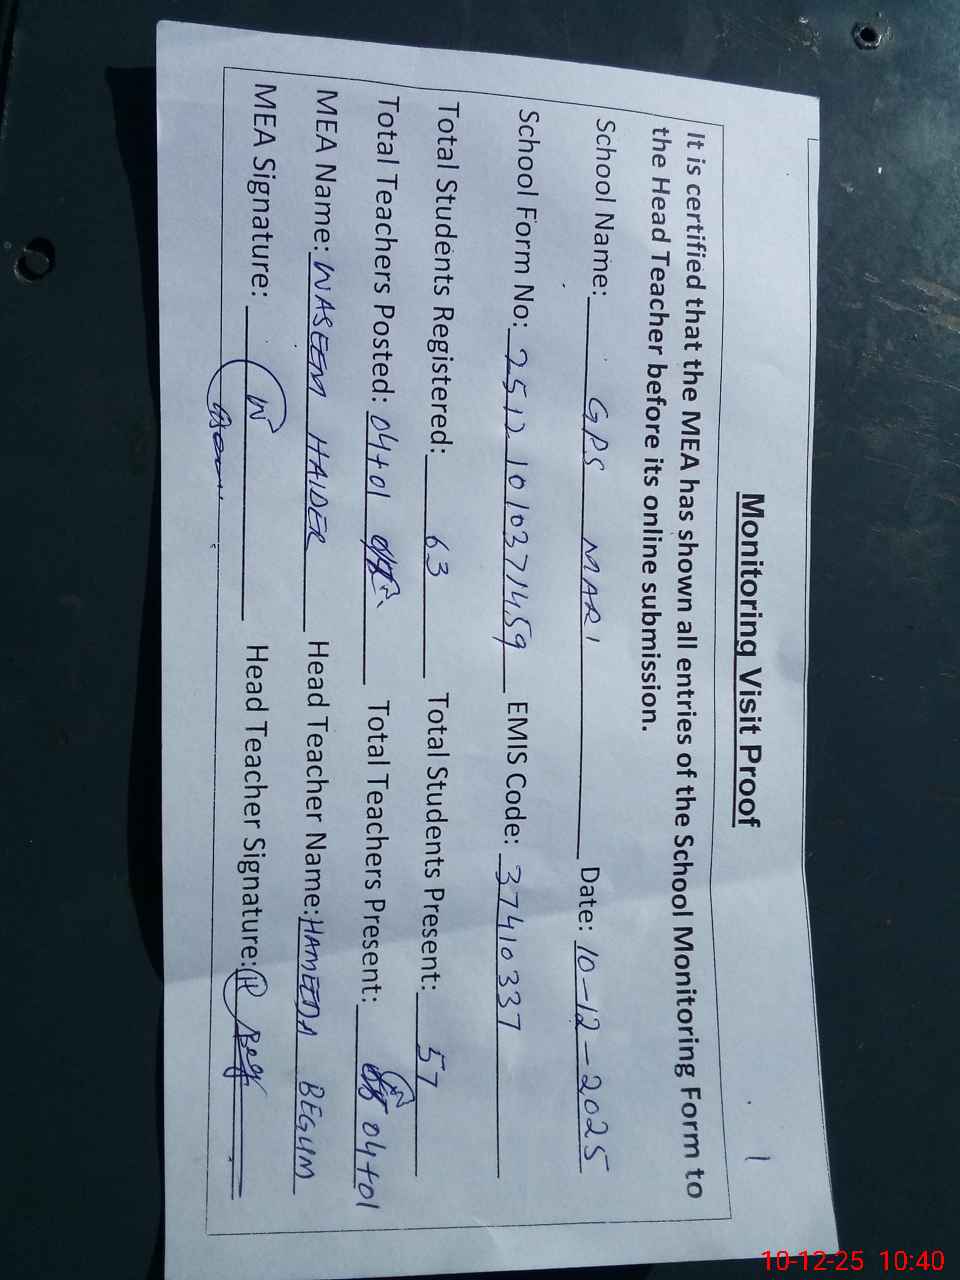 1
Monitoring Visit Proof
It is certified that the MEA has shown all entries of the School Monitoring Form to
the Head Teacher before its online submission.
School Name: GPS MARI Date: 10-12-2025
School Form No: 25121010371459 EMIS Code: 37410337
Total Students Registered: 63 Total Students Present: 57
Total Teachers Posted: 04+01 Total Teachers Present: 04+01
MEA Name: WASEEM HAIDER Head Teacher Name: HAMEEDA BEGUM
MEA Signature: Head Teacher Signature:
10-12-25 10:40